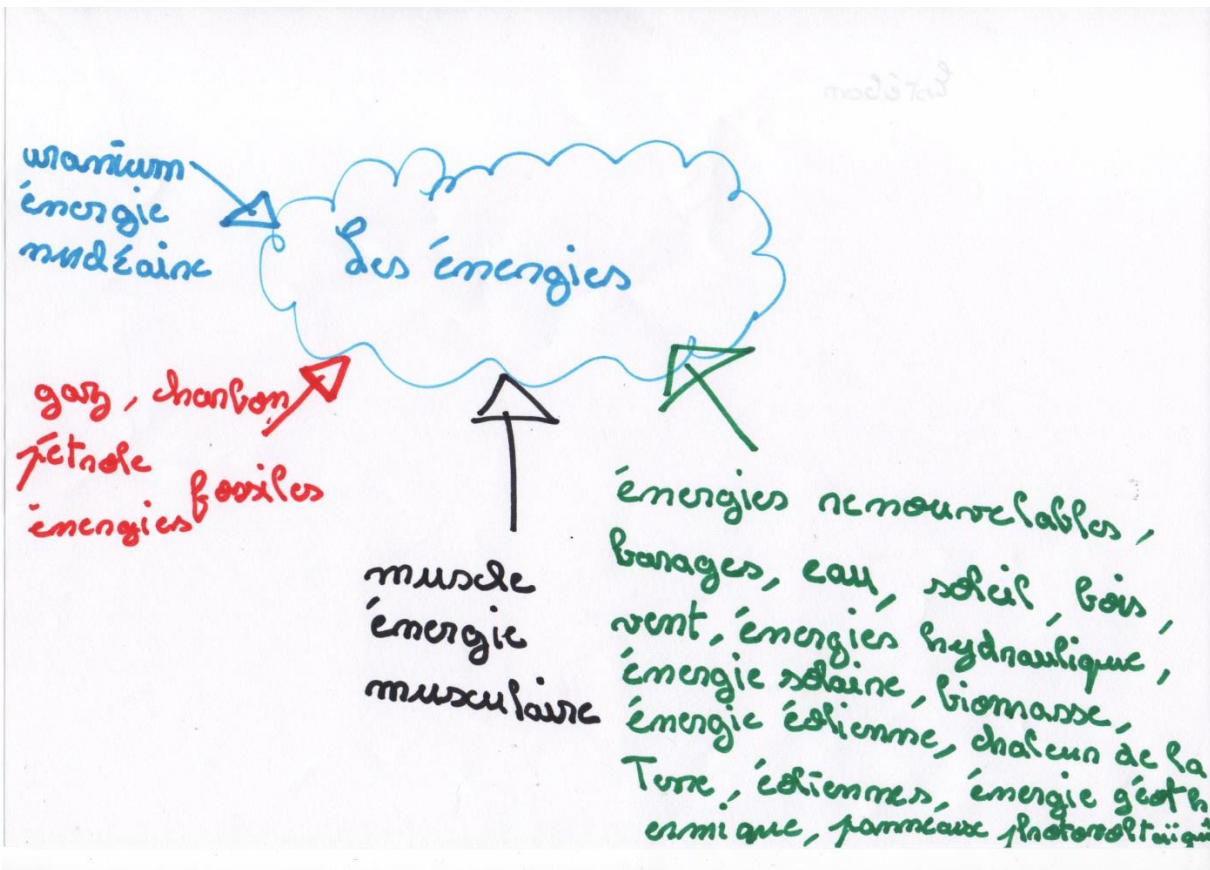 uranium
énergie
nucléaire
Les énergies
gaz, charbon
pétrole
énergies fossiles
muscle
énergie
musculaire
énergies renouvelables,
barages, eau, soleil, bois,
vent, énergies hydraulique,
énergie solaire, biomasse,
énergie éolienne, chaleur de la
Terre, éoliennes, énergie géoth
ermique, panneaux photovoltaïqu